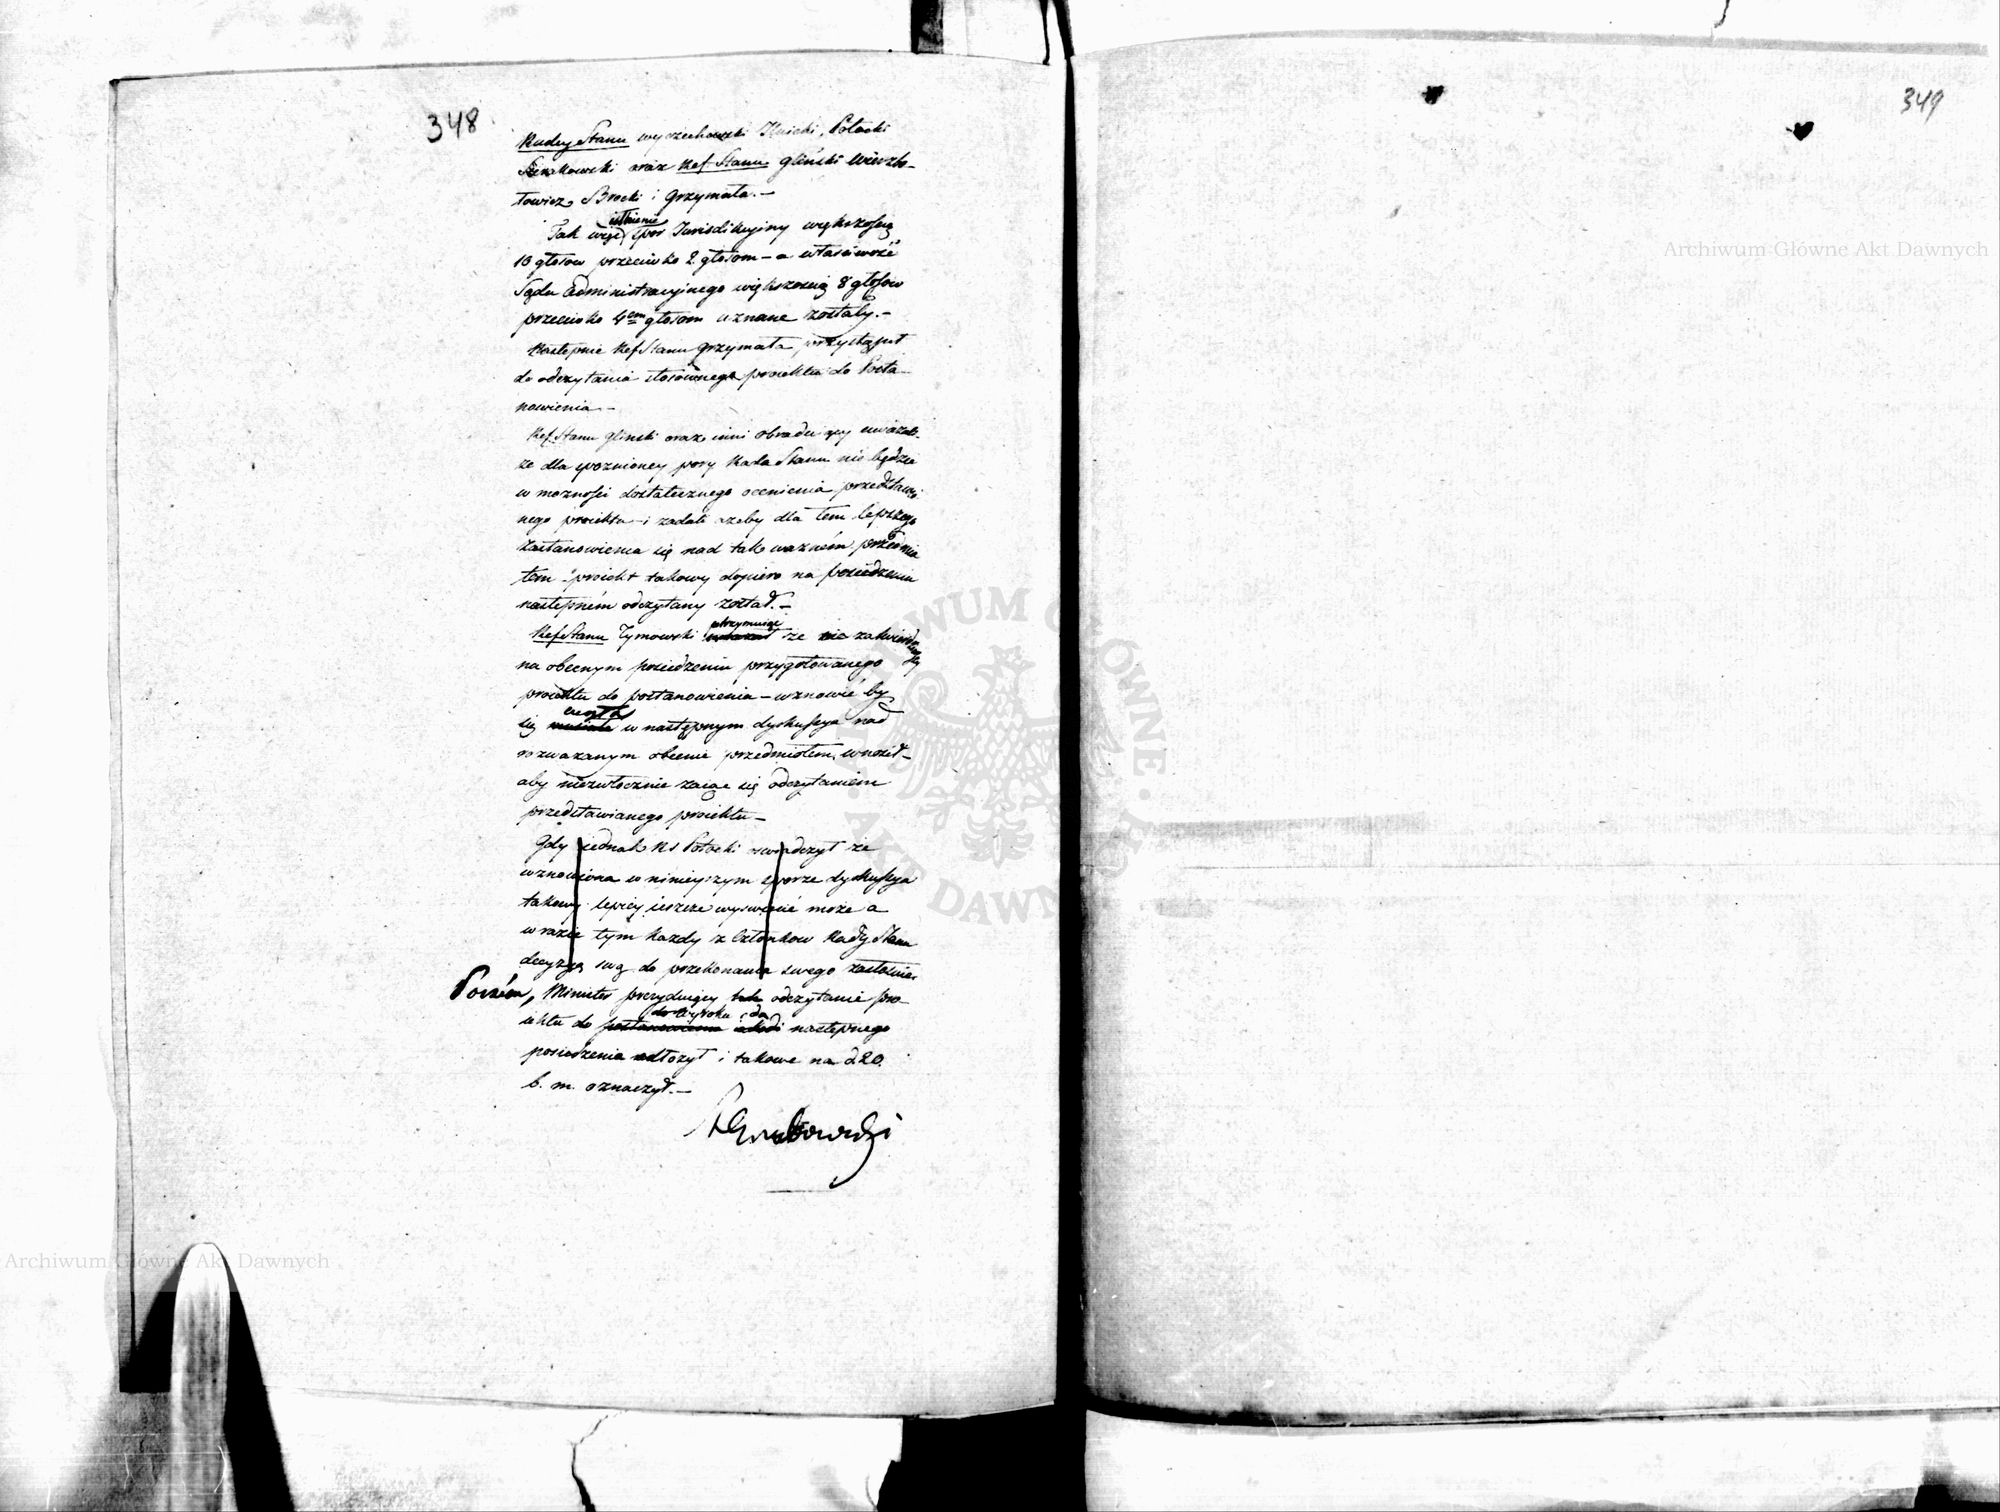 348
Radcy Stanu Wyczechowski Knicki, Potocki
Szaxowski oraz Ref Stanu Gliński Wierzbo-
łowicz Brocki i Grzymała.—
istnienie
Tak więc spor Jurisdikcyiny większoscią
10 głosow przeciwko 2 głosom – a własciwość
Sądu Administracyinego większoscią 8 głosow
przeciwko 4em głosom uznane zostały.–
Następnie Ref Stanu Grzymała, przystąpił
do odczytania stosownego proiektu do Posta-
nowienia –
Ref. Stanu Gliński oraz inni obraduiący uważali
że dla spoznioney pory Rada Stanu nie będzie
w moznosci dostatecznego ocenienia przedstawio-
nego proiektu – i żądali ażeby dla tem lepszego
zastanowienia się nad tak ważném przedmio-
tem – proiekt takowy dopiero na posiedzeniu
następném odczytany został.–
utrzymuiąc
Ref Stanu Tymowski że nie zatwierdziwszy
na obecnym posiedzeniu przygotowanego
proiektu do postanowienia – wznowić by
się w następnym dyskussya nad
rozważanym obecnie przedmiotem, wnosił –
aby niezwłocznie zaiąć się odczytaniem
przedstawianego proiektu –
Gdy iednak RS Potocki oswiadczył że
wznowiona w ninieyszym sporze dyskussya
takowy lepiéy ieszcze wyswiecić może a
w razie tym każdy z Członkow Rady Stanu
decyzyą swą do przekonania swego zastosuie
Poczém, Minister prezyduiący odczytanie pro-
do Wyroku do
iektu do postanowienia następnego
posiedzenia odłożył i takowe na d 20
b. m. oznaczył.–
349
Archiwum Główne Akt Dawnych
Archiwum Główne Akt Dawnych
ARCHIWUM GŁÓWNE AKT DAWNYCH